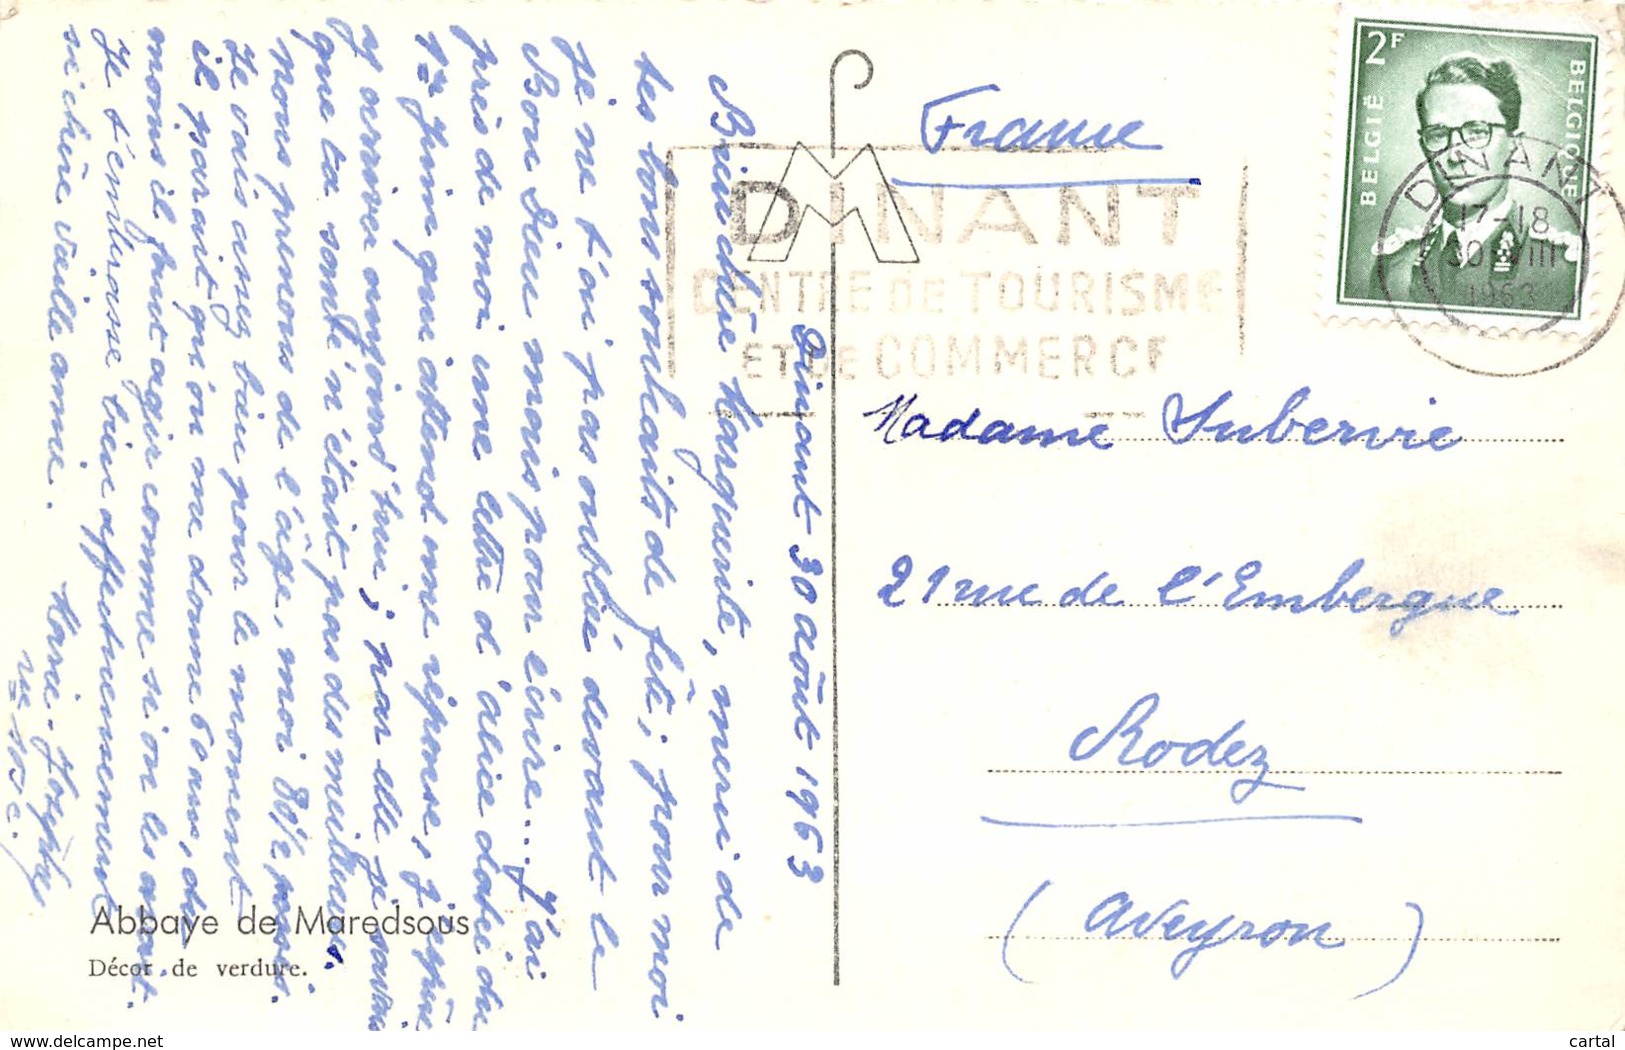 Dinant 30 août 1963
Bien chère Marguerite, merci de
tes bons souhaits de fête; pour moi
je ne t'ai pas oubliée devant le
Bon Dieu mais pour écrire... J'ai
près de moi une lettre d'Alice datée du
1er Juin qui attend une réponse, j'espère
y arriver aujourd'hui; par elle je savais
que ta santé n'était pas des meilleures
nous prenons de l'âge, moi 80 1/2 passés.
Je vais assez bien pour le moment
il parait qu'on me donne 60 ans, du
moins il faut agir comme si on les avait.
Je t'embrasse bien affectueusement
si chère vieille amie.
Marie-Josephy
Abbaye de Maredsous
Décor de verdure.
France
2F
BELGIË
BELGIQUE
DINANT
17-18
30 VIII
1963
DINANT
CENTRE DE TOURISME
ET DE COMMERCE
Madame Subervie
21 rue de l'Embergue
Rodez
(Aveyron)
delcampe.net
cartal